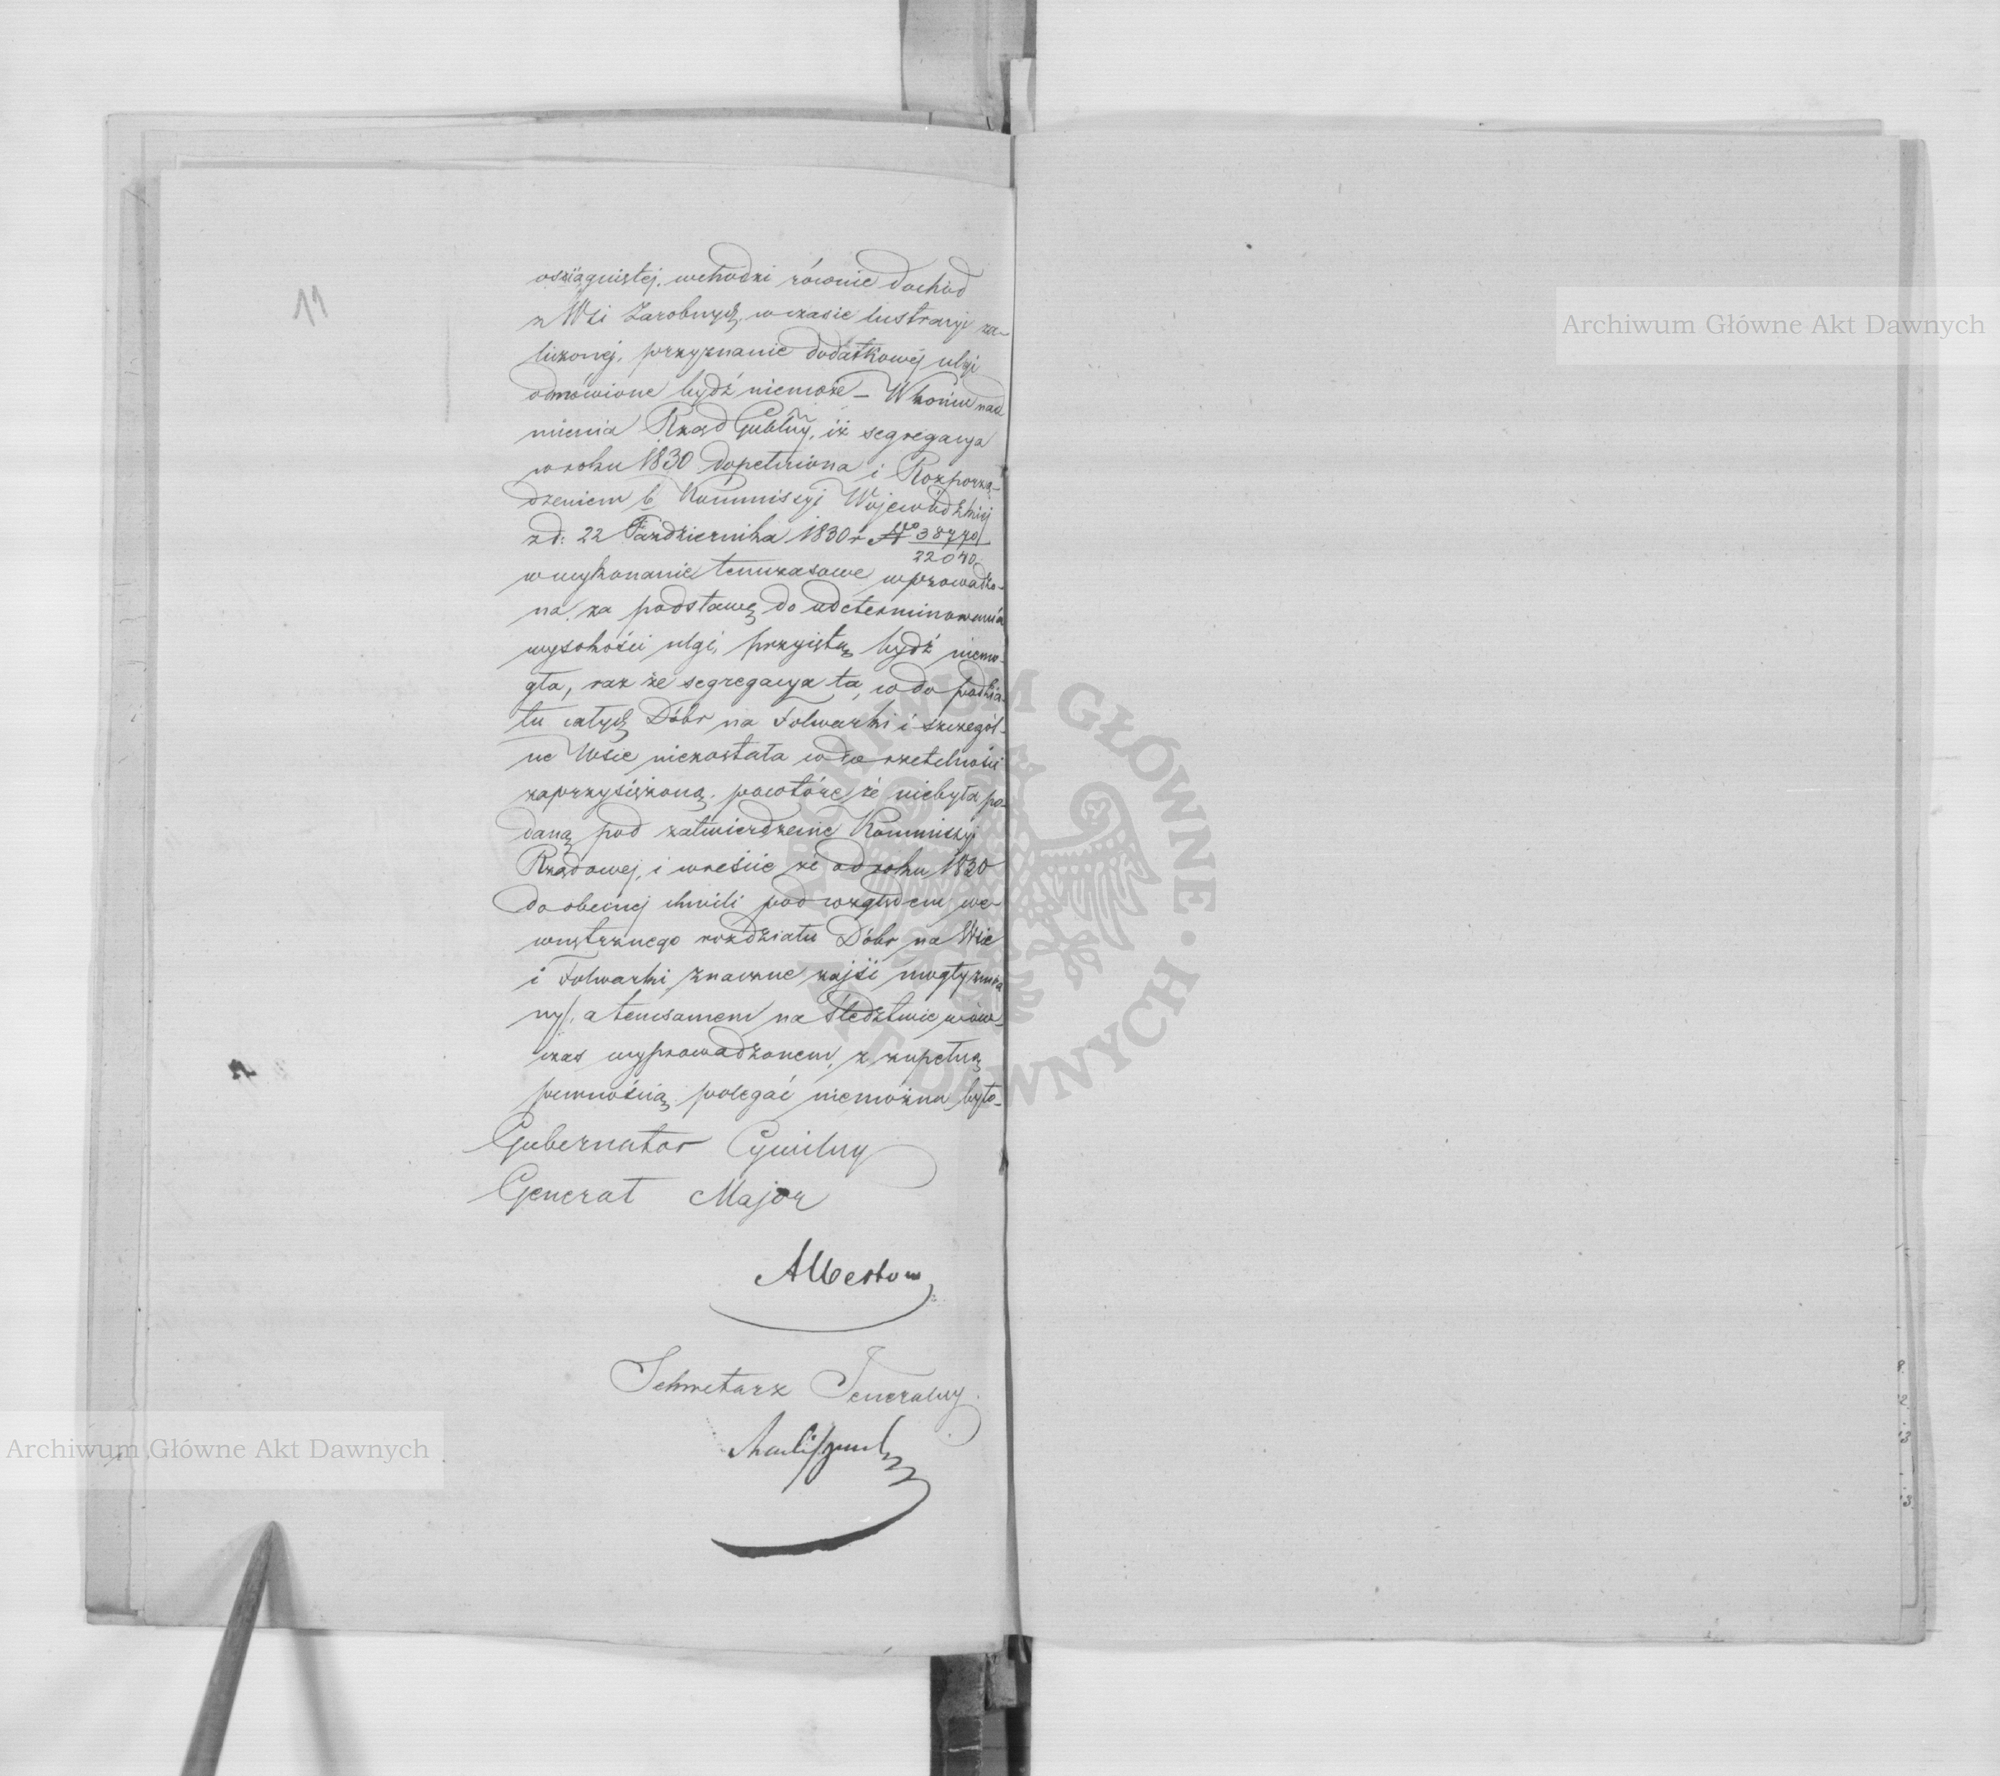 11
osiągniętej, wchodzi równie dochód
z Wsi Zarobnych, w czasie lustracyi za-
liczonej, przyznanie dodatkowej ulgi
odmówione bydź niemoże – W końcu nad
mienia Rząd Gublny, iż segregacya
w roku 1830 dopełniona i Rozporzą-
dzeniem b. Kommissyi Wojewódzkiej
z d: 22 Października 1830 r No 38770/22040
w wykonanie tymczasowe wprowadzo-
na, za podstawę do udeterminowania
wysokości ulgi, przyiętą bydź niemo-
gła, raz że segregacya ta, co do podzia-
łu całych Dóbr na Folwarki i szczegól-
ne Wsie niezostała co do rzetelności
zaprzysiężoną, powtóre że niebyła po-
daną pod zatwierdzenie Kommissyi
Rządowej, i wreście że od roku 1830
do obecnej chwili pod względem we-
wnętrznego rozdziału Dóbr na Wsie
i Folwarki znaczne zajść mogły zmia
ny, a temsamem na Śledztwie wów-
czas wyprowadzonem, z zupełną
pewnością polegać niemożna było.
Gubernator Cywilny
Generał Major
Albertow
Sekretarz Generalny
Archiwum Główne Akt Dawnych
Archiwum Główne Akt Dawnych
ARCHIWUM GŁÓWNE • AKT DAWNYCH •